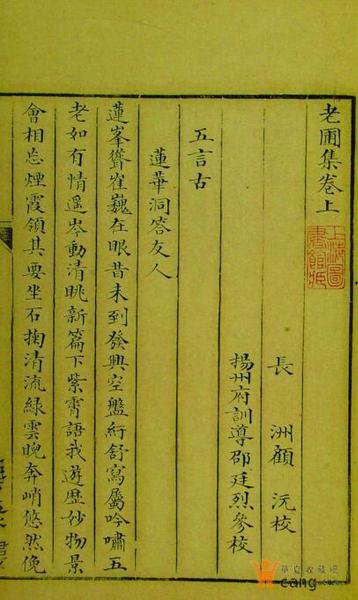 老圃集卷上
上海圖
書館藏
長洲顧沅校
揚州府訓導邵廷烈參校
五言古
蓮華洞答友人
蓮峯聳崔巍在眼昔未到發興空盤紆舒寫屬吟嘯五
老如有情遥岑動清眺新篇下紫霄語我遊歷妙物景
會相忘煙霞領其要坐石掬清流綠雲睨奔峭悠然俛
華夏收藏網
cang.com